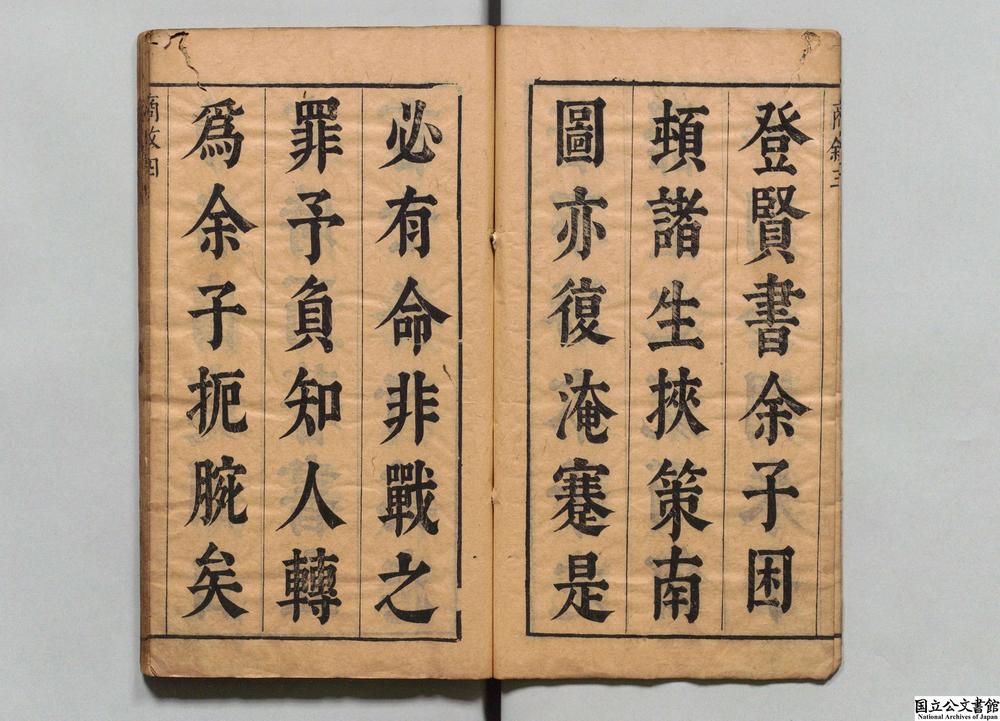 登賢書余子困
頓諸生挾策南
圖亦復淹蹇是
必有命非戰之
罪予負知人轉
爲余子扼腕矣
国立公文書館
National Archives of Japan